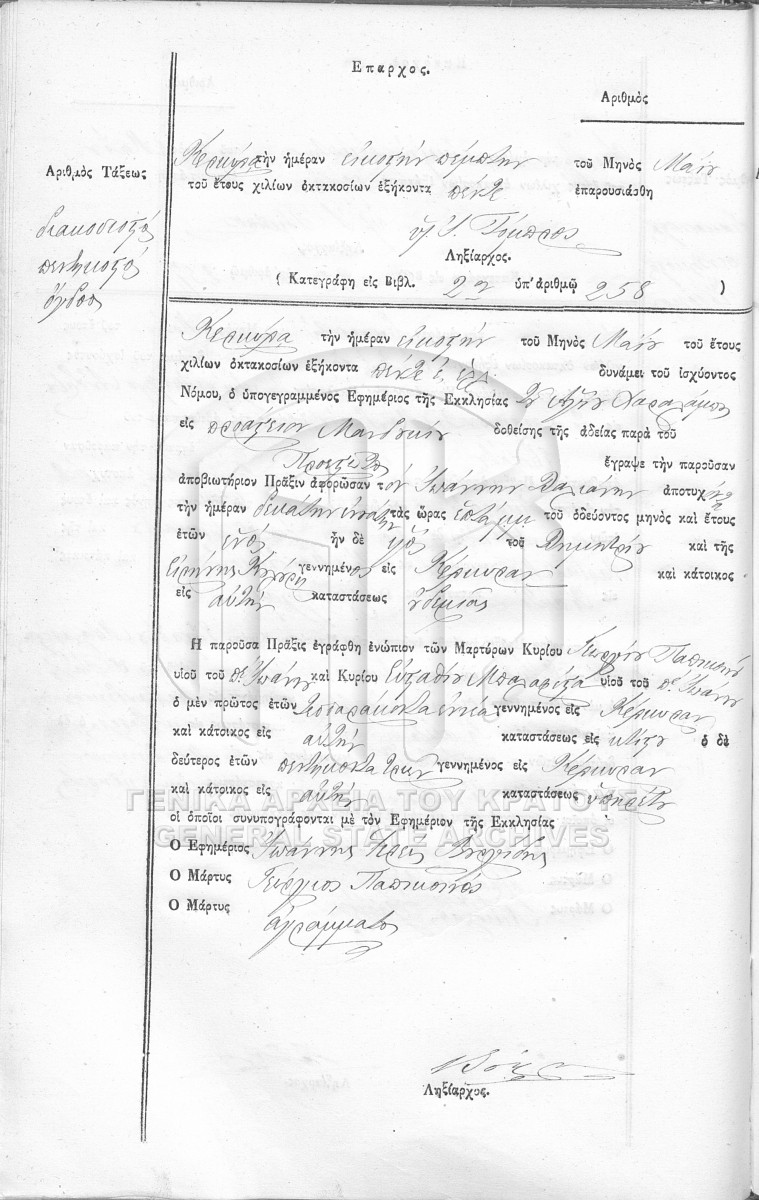 Επαρχος.
Αριθμὸς
Αριθμὸς Τάξεως
διακοσιοστός
πεντηκοστός
ὄγδοος
Κερκύρα τὴν ἡμέραν εἰκοστὴν πέμπτην τοῦ Μηνὸς Μαΐου
τοῦ ἔτους χιλίων ὀκτακοσίων ἑξήκοντα πέντε ἐπαρουσιάσθη
Ληξίαρχος.
( Κατεγράφη εἰς Βιβλ. 2ον ὑπ' ἀριθμῷ 258 )
Κερκύρα τὴν ἡμέραν εἰκοστὴν τοῦ Μηνὸς Μαΐου τοῦ ἔτους
χιλίων ὀκτακοσίων ἑξήκοντα πέντε δυνάμει τοῦ ἰσχύοντος
Νόμου, ὁ ὑπογεγραμμένος Ἐφημέριος τῆς Ἐκκλησίας τοῦ Ἁγίου Χαραλάμπου
εἰς προάστειον Μανδουκίου δοθείσης τῆς ἀδείας παρὰ τοῦ
ἔγραψε τὴν παροῦσαν
ἀποβιωτήριον Πρᾶξιν ἀφορῶσαν τὸν Ἰωάννην ἀποτυχ
τὴν ἡμέραν δεκάτην ἐνάτην τὰς ὥρας ἑπτὰ τοῦ ὁδεύοντος μηνὸς καὶ ἔτους
ἐτῶν ἑνός ἦν δὲ υἱὸς τοῦ Δημητρίου καὶ τῆς
Εἰρήνης γεννημένος εἰς Κέρκυραν καὶ κάτοικος
εἰς αὐτήν καταστάσεως οὐδεμιᾶς
Η παροῦσα Πρᾶξις ἐγράφθη ἐνώπιον τῶν Μαρτύρων Κυρίου Γεωργίου
υἱοῦ τοῦ πτ Ἰωάννου καὶ Κυρίου Εὐσταθίου υἱοῦ τοῦ πτ Ἰωάννου
ὁ μὲν πρῶτος ἐτῶν τεσσαράκοντα ἐννέα γεννημένος εἰς Κέρκυραν
καὶ κάτοικος εἰς αὐτήν καταστάσεως εἰς κτίστου ὁ δὲ
δεύτερος ἐτῶν πεντήκοντα τριῶν γεννημένος εἰς Κέρκυραν
καὶ κάτοικος εἰς αὐτήν καταστάσεως ὑπηρέτου
οἱ ὁποῖοι συνυπογράφονται μὲ τὸν Ἐφημέριον τῆς Ἐκκλησίας
Ο Ἐφημέριος Ἰωάννης Ἱερεὺς
Ο Μάρτυς Γεώργιος
Ο Μάρτυς
ἀγράμματος
Ληξίαρχος.
ΓΕΝΙΚΑ ΑΡΧΕΙΑ ΤΟΥ ΚΡΑΤΟΥΣ
GENERAL STATE ARCHIVES